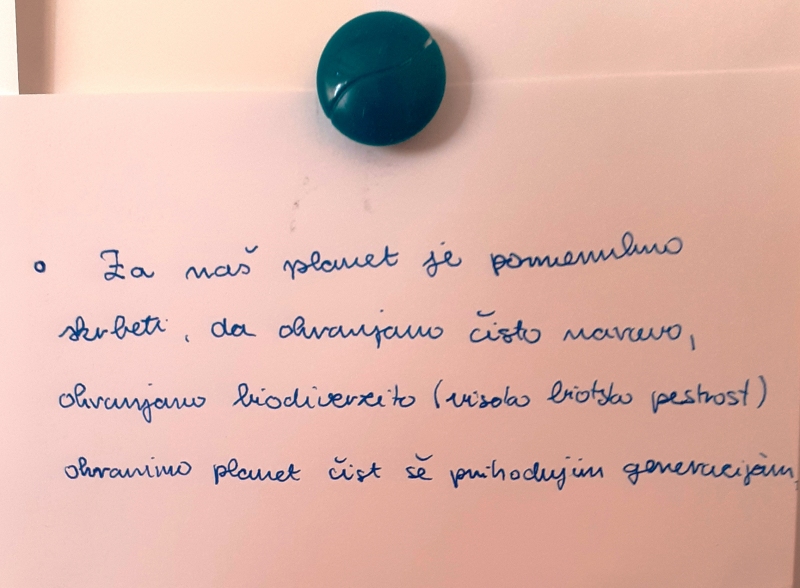 Za naš planet je pomembno
skrbeti, da ohranjamo čisto naravo,
ohranjamo biodiverzito (visoko biotsko pestrost)
ohranimo planet čist še prihodnjim generacijam.